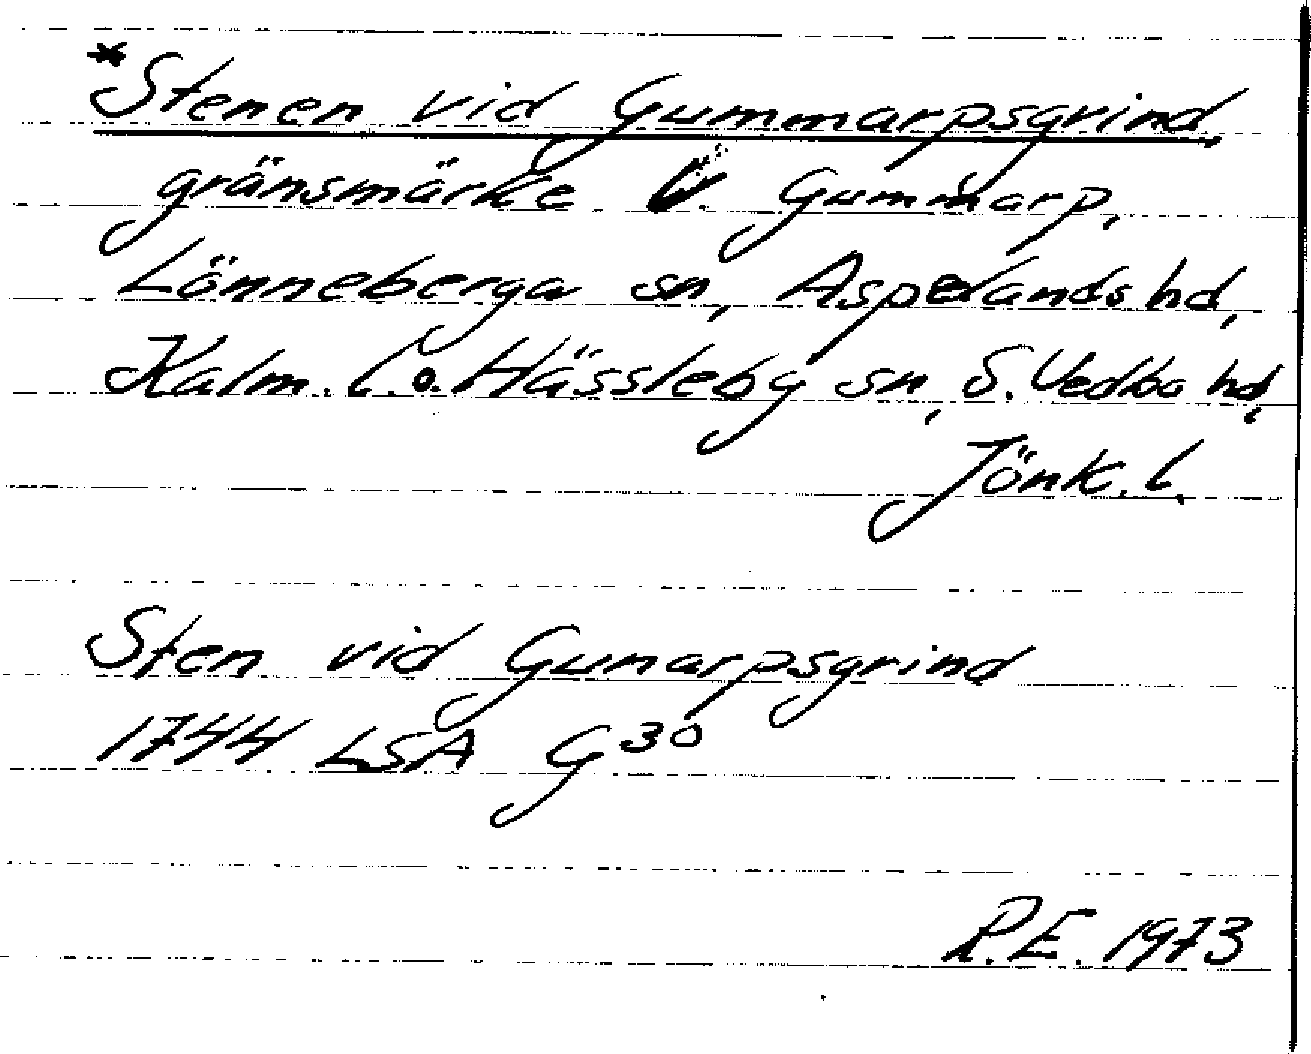 *Stenen vid Gummarpsgrind,
gränsmärke V. Gummarp,
Lönneberga sn, Aspelands hd,
Kalm. l. o. Hässleby sn, S. Vedbo hd,
Jönk. l.
Sten vid Gunarpsgrind
1744 LSA G³⁰
R.E. 1973